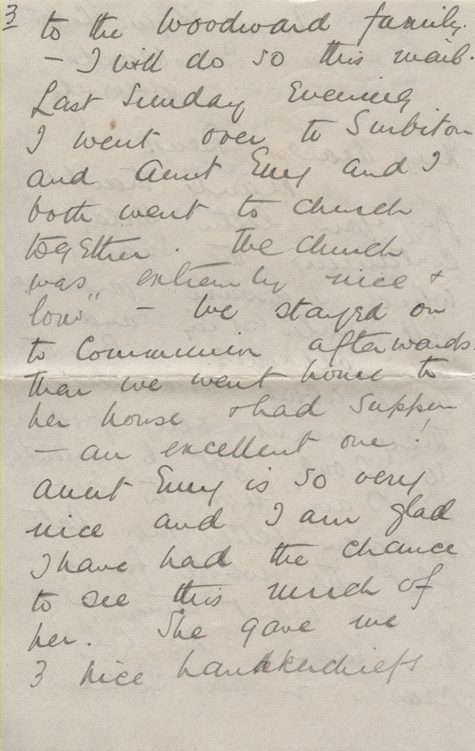 3
to the Woodward family.
- I will do so this mail.
Last Sunday Evening
I went over to Surbiton
and Aunt Emy and I
both went to church
together. The church
was extremely nice &
"low" - We stayed on
to Communion afterwards.
then we went home to
her house & had supper
- an excellent one!
Aunt Emy is so very
nice and I am glad
I have had the chance
to see this much of
her. She gave me
3 nice hankkerchiefs